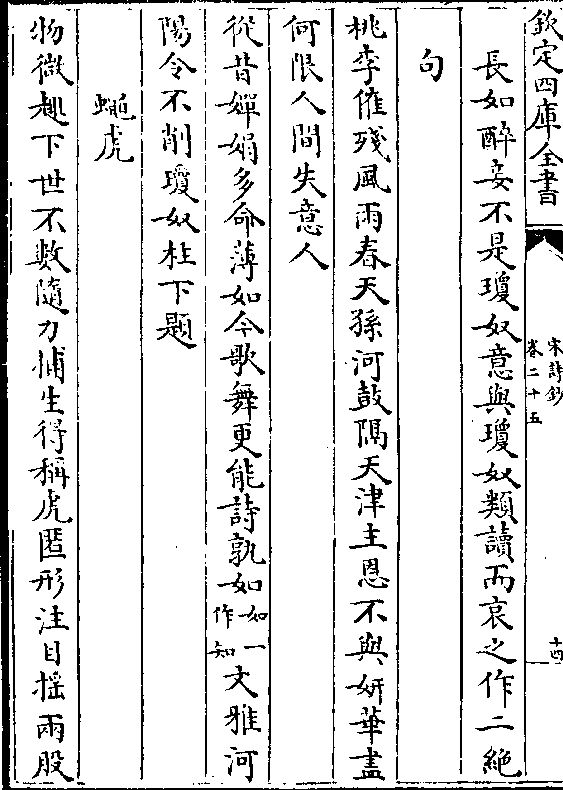 欽定四庫全書
宋詩鈔
卷二十五
十四
長如醉妄不是瓊奴意與瓊奴類讀而哀之作二絶
句
桃李催殘風雨春天孫河鼓隔天津主恩不與妍華盡
何限人間失意人
從昔嬋娟多命薄如今歌舞更能詩孰如如一作知文雅河
陽令不削瓊奴柱下題
蠅虎
物微趣下世不數隨力捕生得稱虎匿形注目摇兩股